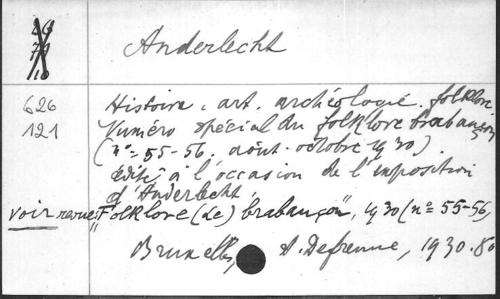 Anderlecht
626
121
Histoire, art, archéologie, folklore
Numéro spécial du folklore brabançon
(n° 55-56, août-octobre 1930).
édité à l'occasion de l'exposition
d'Anderlecht.
voir revue: "Folklore (Le) brabançon", 1930 (n° 55-56,
Bruxelles, A. Defrenne, 1930. 8°